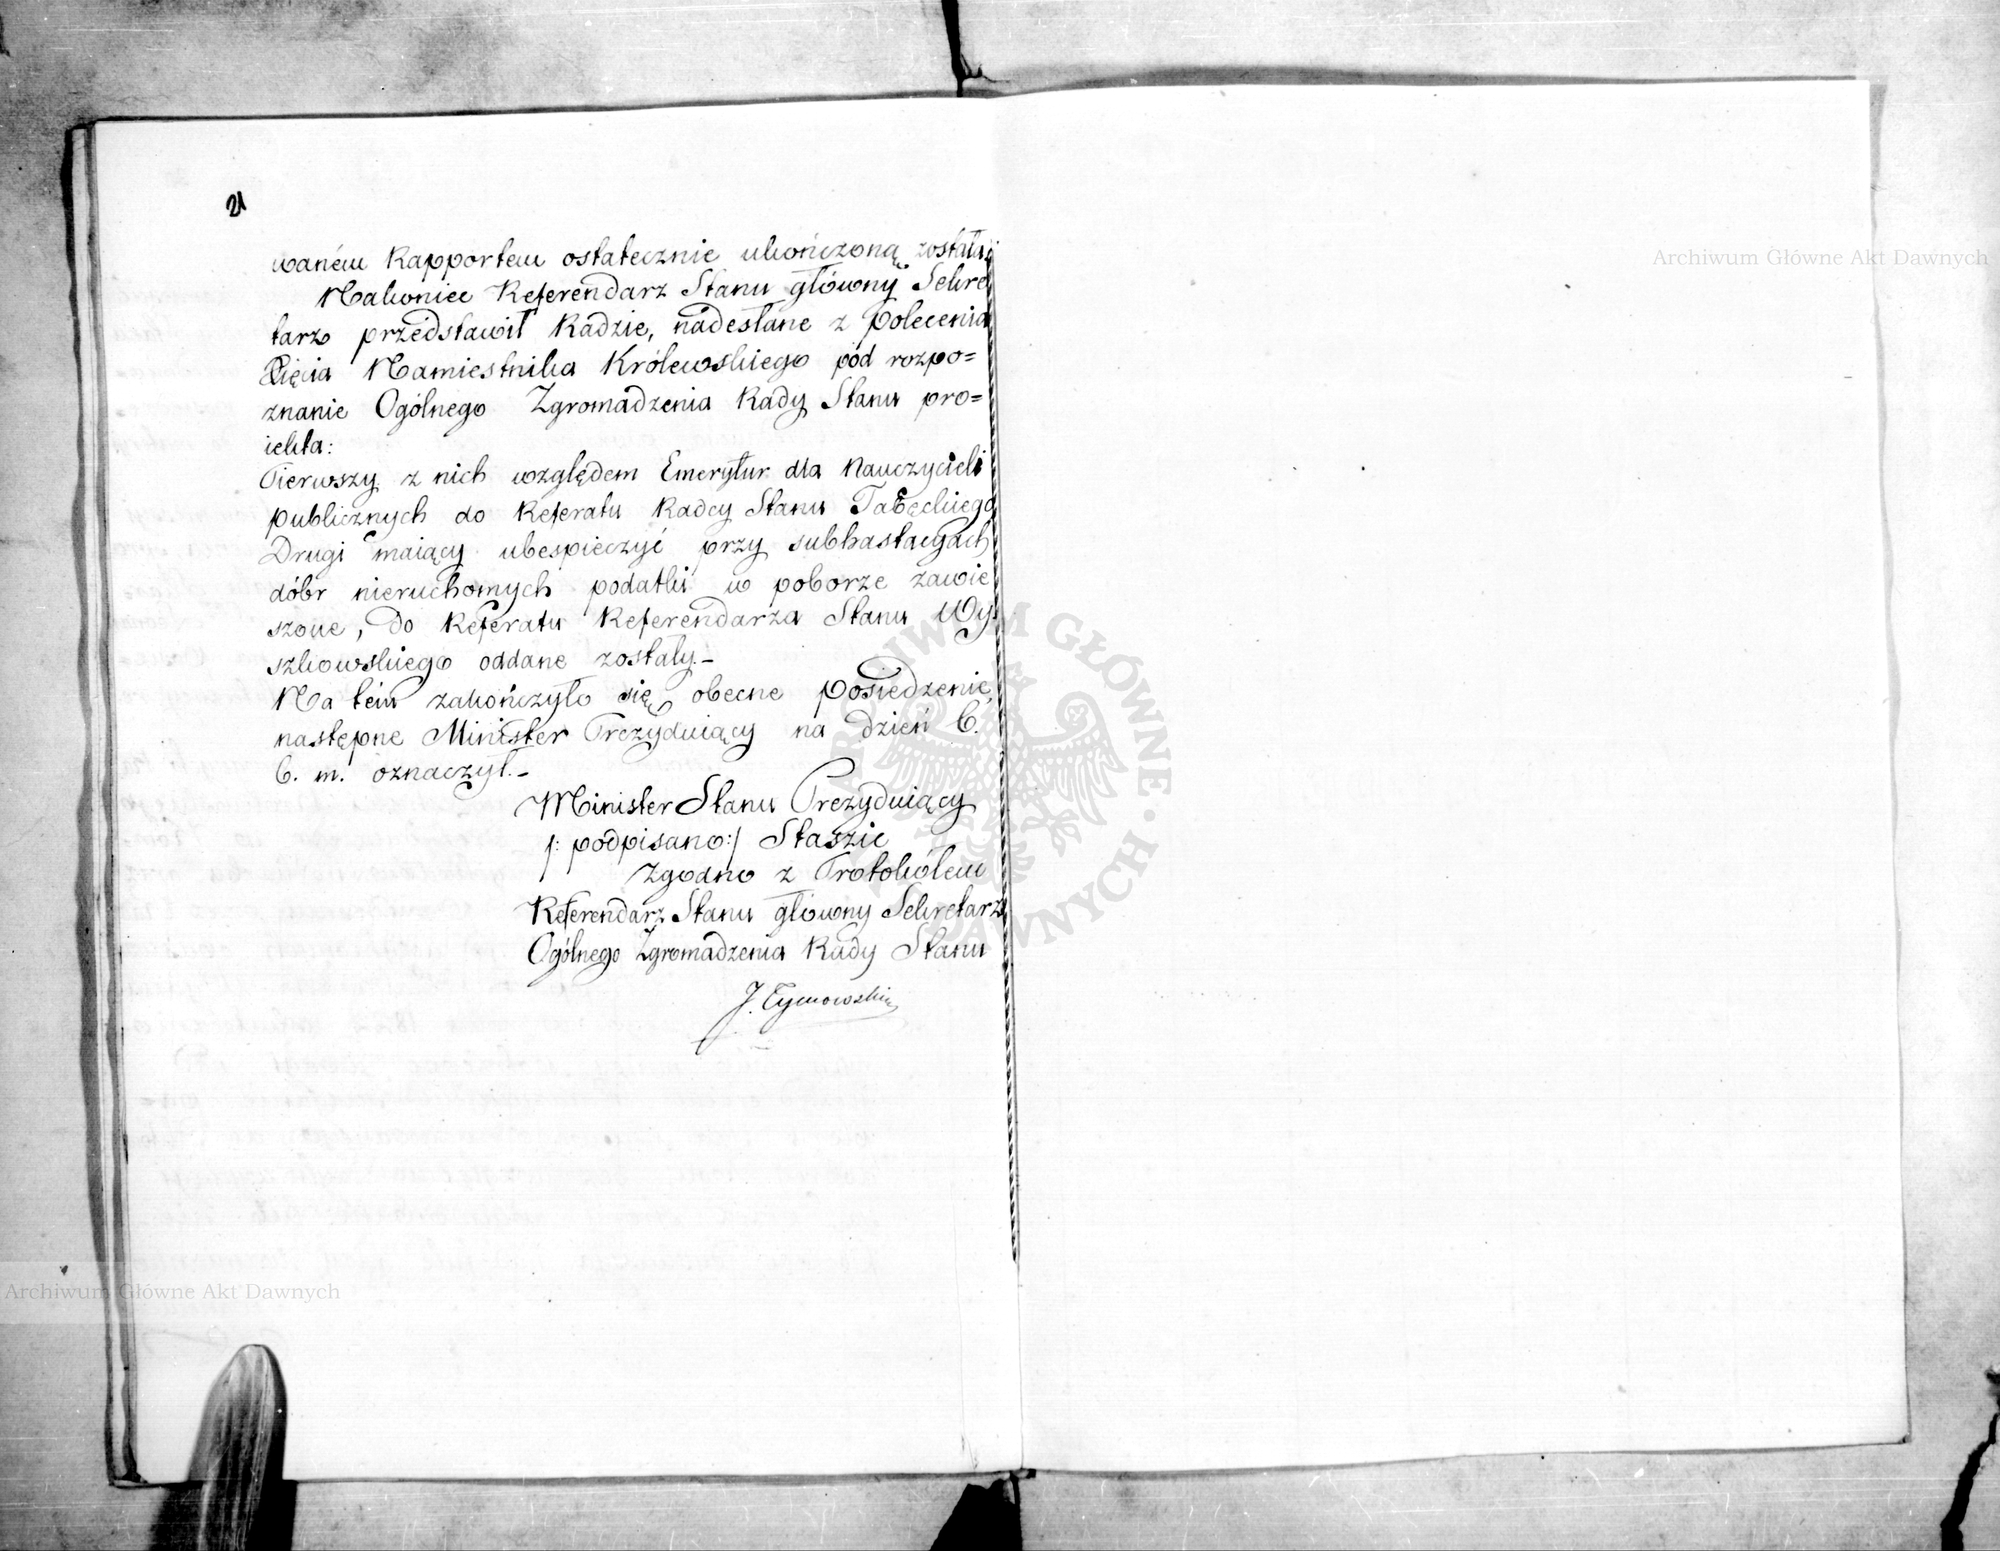 21
waném Rapportem ostatecznie ukończoną została;
Nakoniec Referendarz Stanu główny Sekre
tarz przedstawił Radzie, nadesłane z polecenia
Xięcia Namiestnika Królewskiego pod rozpo=
znanie Ogólnego Zgromadzenia Rady Stanu pro=
iekta:
Pierwszy z nich względem Emerytur dla Nauczycieli
publicznych do Referatu Radcy Stanu
Drugi maiący ubespieczyć przy subhastacyach
dóbr nieruchomych podatki w poborze zawie
szone, do Referatu Referendarza Stanu Wy
szkowskiego oddane zostały.-
Na tém zakończyło się obecne posiedzenie,
następne Minister Prezyduiący na dzień 6.
b. m. oznaczył.-
Minister Stanu Prezyduiący
/: podpisano:/ Staszic
Zgodno z Protokółem
Referendarz Stanu główny Sekretarz
Ogólnego Zgromadzenia Rady Stanu
J. Tymowski
Archiwum Główne Akt Dawnych
Archiwum Główne Akt Dawnych
ARCHIWUM GŁÓWNE AKT DAWNYCH